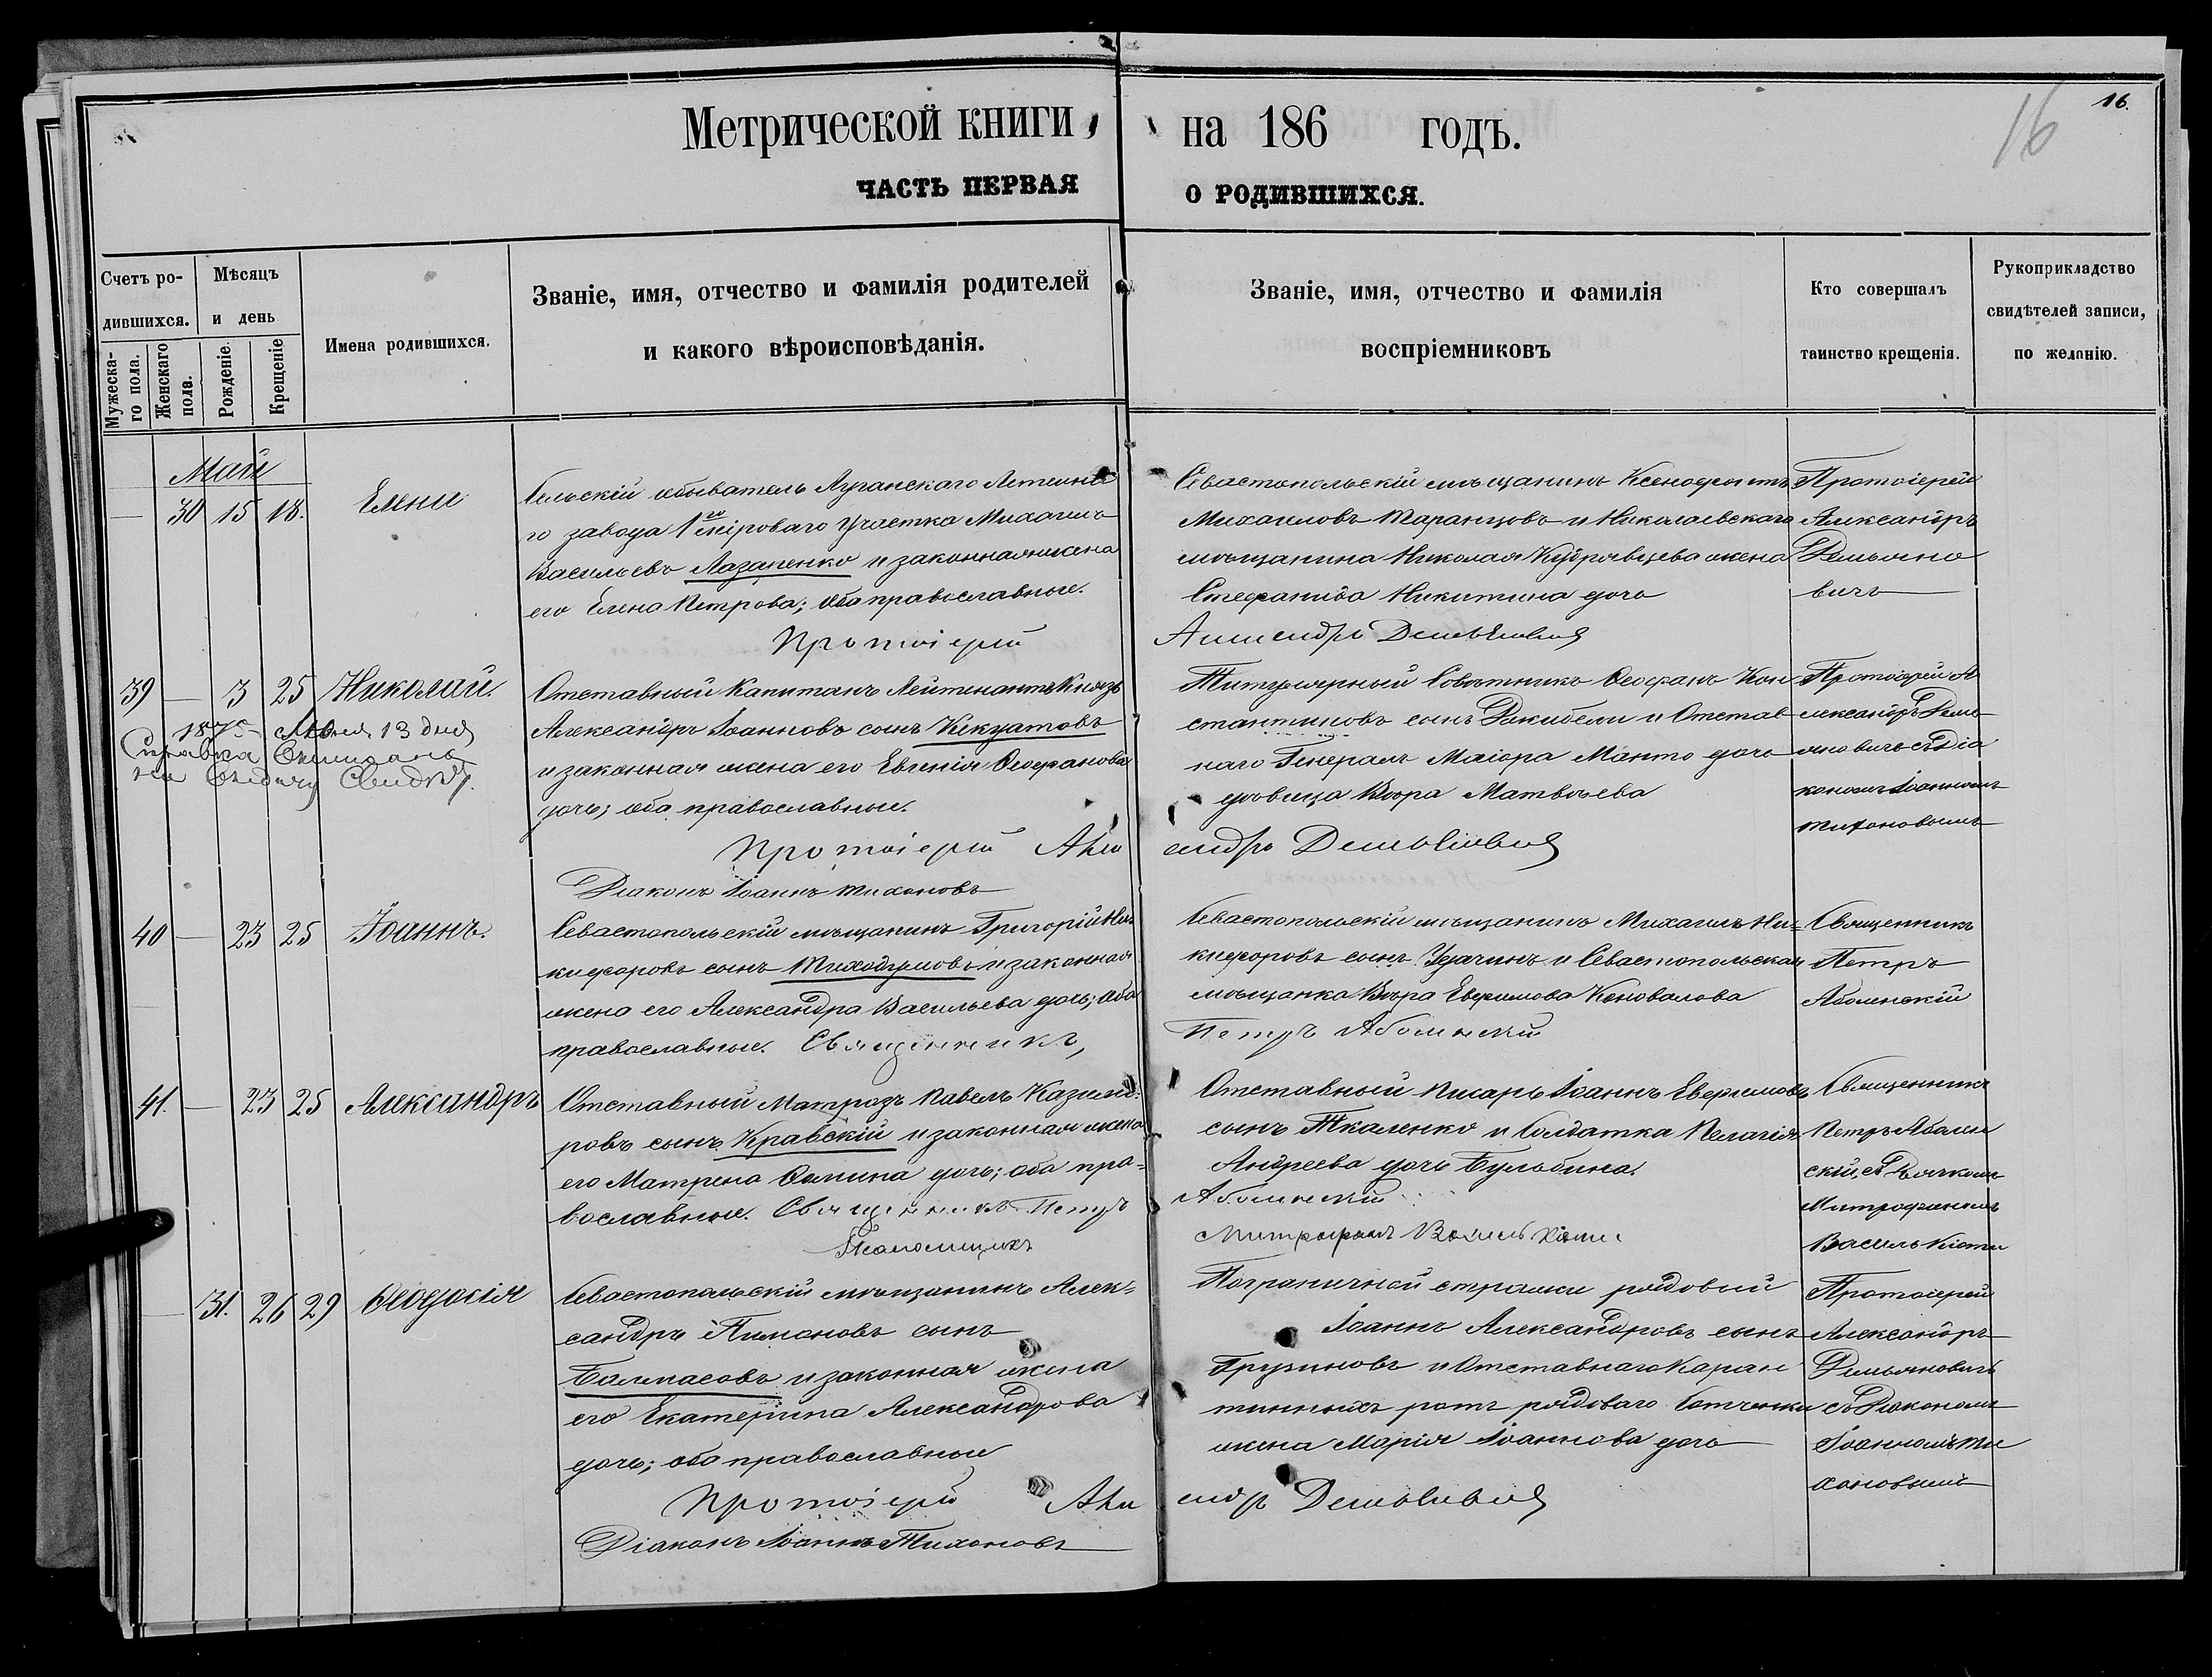 16.
16
Метрической книги на 186 годъ.
ЧАСТЬ ПЕРВАЯ О РОДИВШИХСЯ.
Счетъ ро-
дившихся.
Мужеска-
го пола.
Женскаго
пола.
Мѣсяцъ
и день
Рожденіе.
Крещеніе
Имена родившихся.
Званіе, имя, отчество и фамилія родителей
и какого вѣроисповѣданія.
Званіе, имя, отчество и фамилія
воспріемниковъ
Кто совершалъ
таинство крещенія.
Рукоприкладство
свидѣтелей записи,
по желанію.
Май
— 30 15 18. Елена
Сельскій обыватель Луганскаго Литейна
го завода 1го мироваго участка Михаилъ
Васильевъ Лазаненко и законная жена
его Елена Петрова; оба православные.
Протоіерей
Севастопольскій мѣщанинъ Ксенофонтъ
Михаиловъ Таранцовъ и Николаевскаго
мѣщанина Николая Кудрявцева жена
Стефанида Никитина дочь
Александръ Демьяновичъ
Протоіерей
Александръ
Демьяно
вичъ
39 — 3 25 Николай.
1875 Июня 13 дня
Справка
Отставный Капитанъ Лейтенантъ Князь
Александръ Іоанновъ сынъ Кекуатовъ
и законная жена его Евгенія Ѳеофанова
дочь; оба православные.
Протоіерей Алек
Діаконъ Іоаннъ Тихоновъ
Титулярный Совѣтникъ Ѳеофанъ Кон
стантиновъ сынъ Ракибели и Отстав
наго Генералъ Маіора Манто дочь
дѣвица Вѣра Матвѣева
сандръ Демьяновичъ
Протоіерей А
лександръ Демь
яновичъ съ Діа
кономъ Іоанномъ
Тихоновымъ
40 — 23 25 Іоаннъ.
Севастопольскій мѣщанинъ Григорій Ни
кифоровъ сынъ Тиходумовъ и законная
жена его Александра Васильева дочь; оба
православные. Священникъ,
Севастопольскій мѣщанинъ Михаилъ Ни-
кифоровъ сынъ Удачинъ и Севастопольская
мѣщанка Вѣра Евфимова Коновалова
Петръ Аболенскій
Священникъ
Петръ
Аболенскій
41. — 23 25 Александръ
Отставный Матрозъ Павелъ Казими-
ровъ сынъ Кравскій и законная жена
его Матрена Ѳомина дочь; оба пра-
вославные. Священникъ Петръ
Отставный Писарь Іоаннъ Евфимовъ
сынъ Ткаленко и Солдатка Пелагія
Андреева дочь Бульбина.
Аболенскій
Митрофанъ
Священникъ
Петръ Аболен
скій, съ Дьячкомъ
Митрофаномъ
— 31. 26 29 Ѳеодосія
Севастопольскій мѣщанинъ Алек-
сандръ Пимоновъ сынъ
Балмасовъ и законная жена
его Екатерина Александрова
дочь; оба православные
Протоіерей Алек
Діаконъ Іоаннъ Тихоновъ
Пограничной стражи рядовый
Іоаннъ Александровъ сынъ
Грузиновъ и Отставнаго Каран
тинныхъ ротъ рядоваго Сотченки
жена Марія Іоаннова дочь
сандръ Демьяновичъ
Протоіерей
Александръ
Демьяновичъ
съ Діакономъ
Іоанномъ Ти
хоновымъ